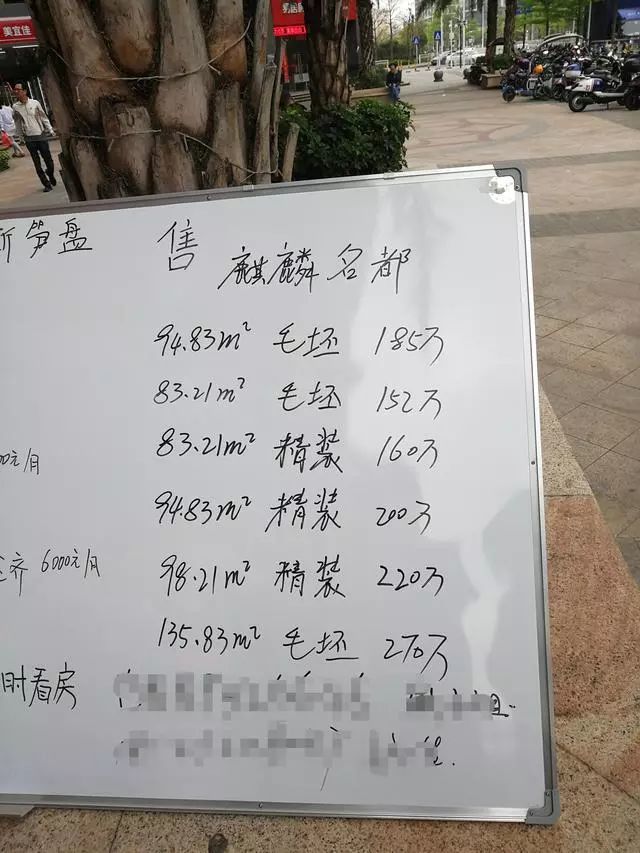 美宜佳
笋盘 售
麒麟名都
94.83m² 毛坯 185万
83.21m² 毛坯 152万
83.21m² 精装 160万
00元/月
94.83m² 精装 200万
98.21m² 精装 220万
齐 6000元/月
135.83m² 毛坯 270万
时看房